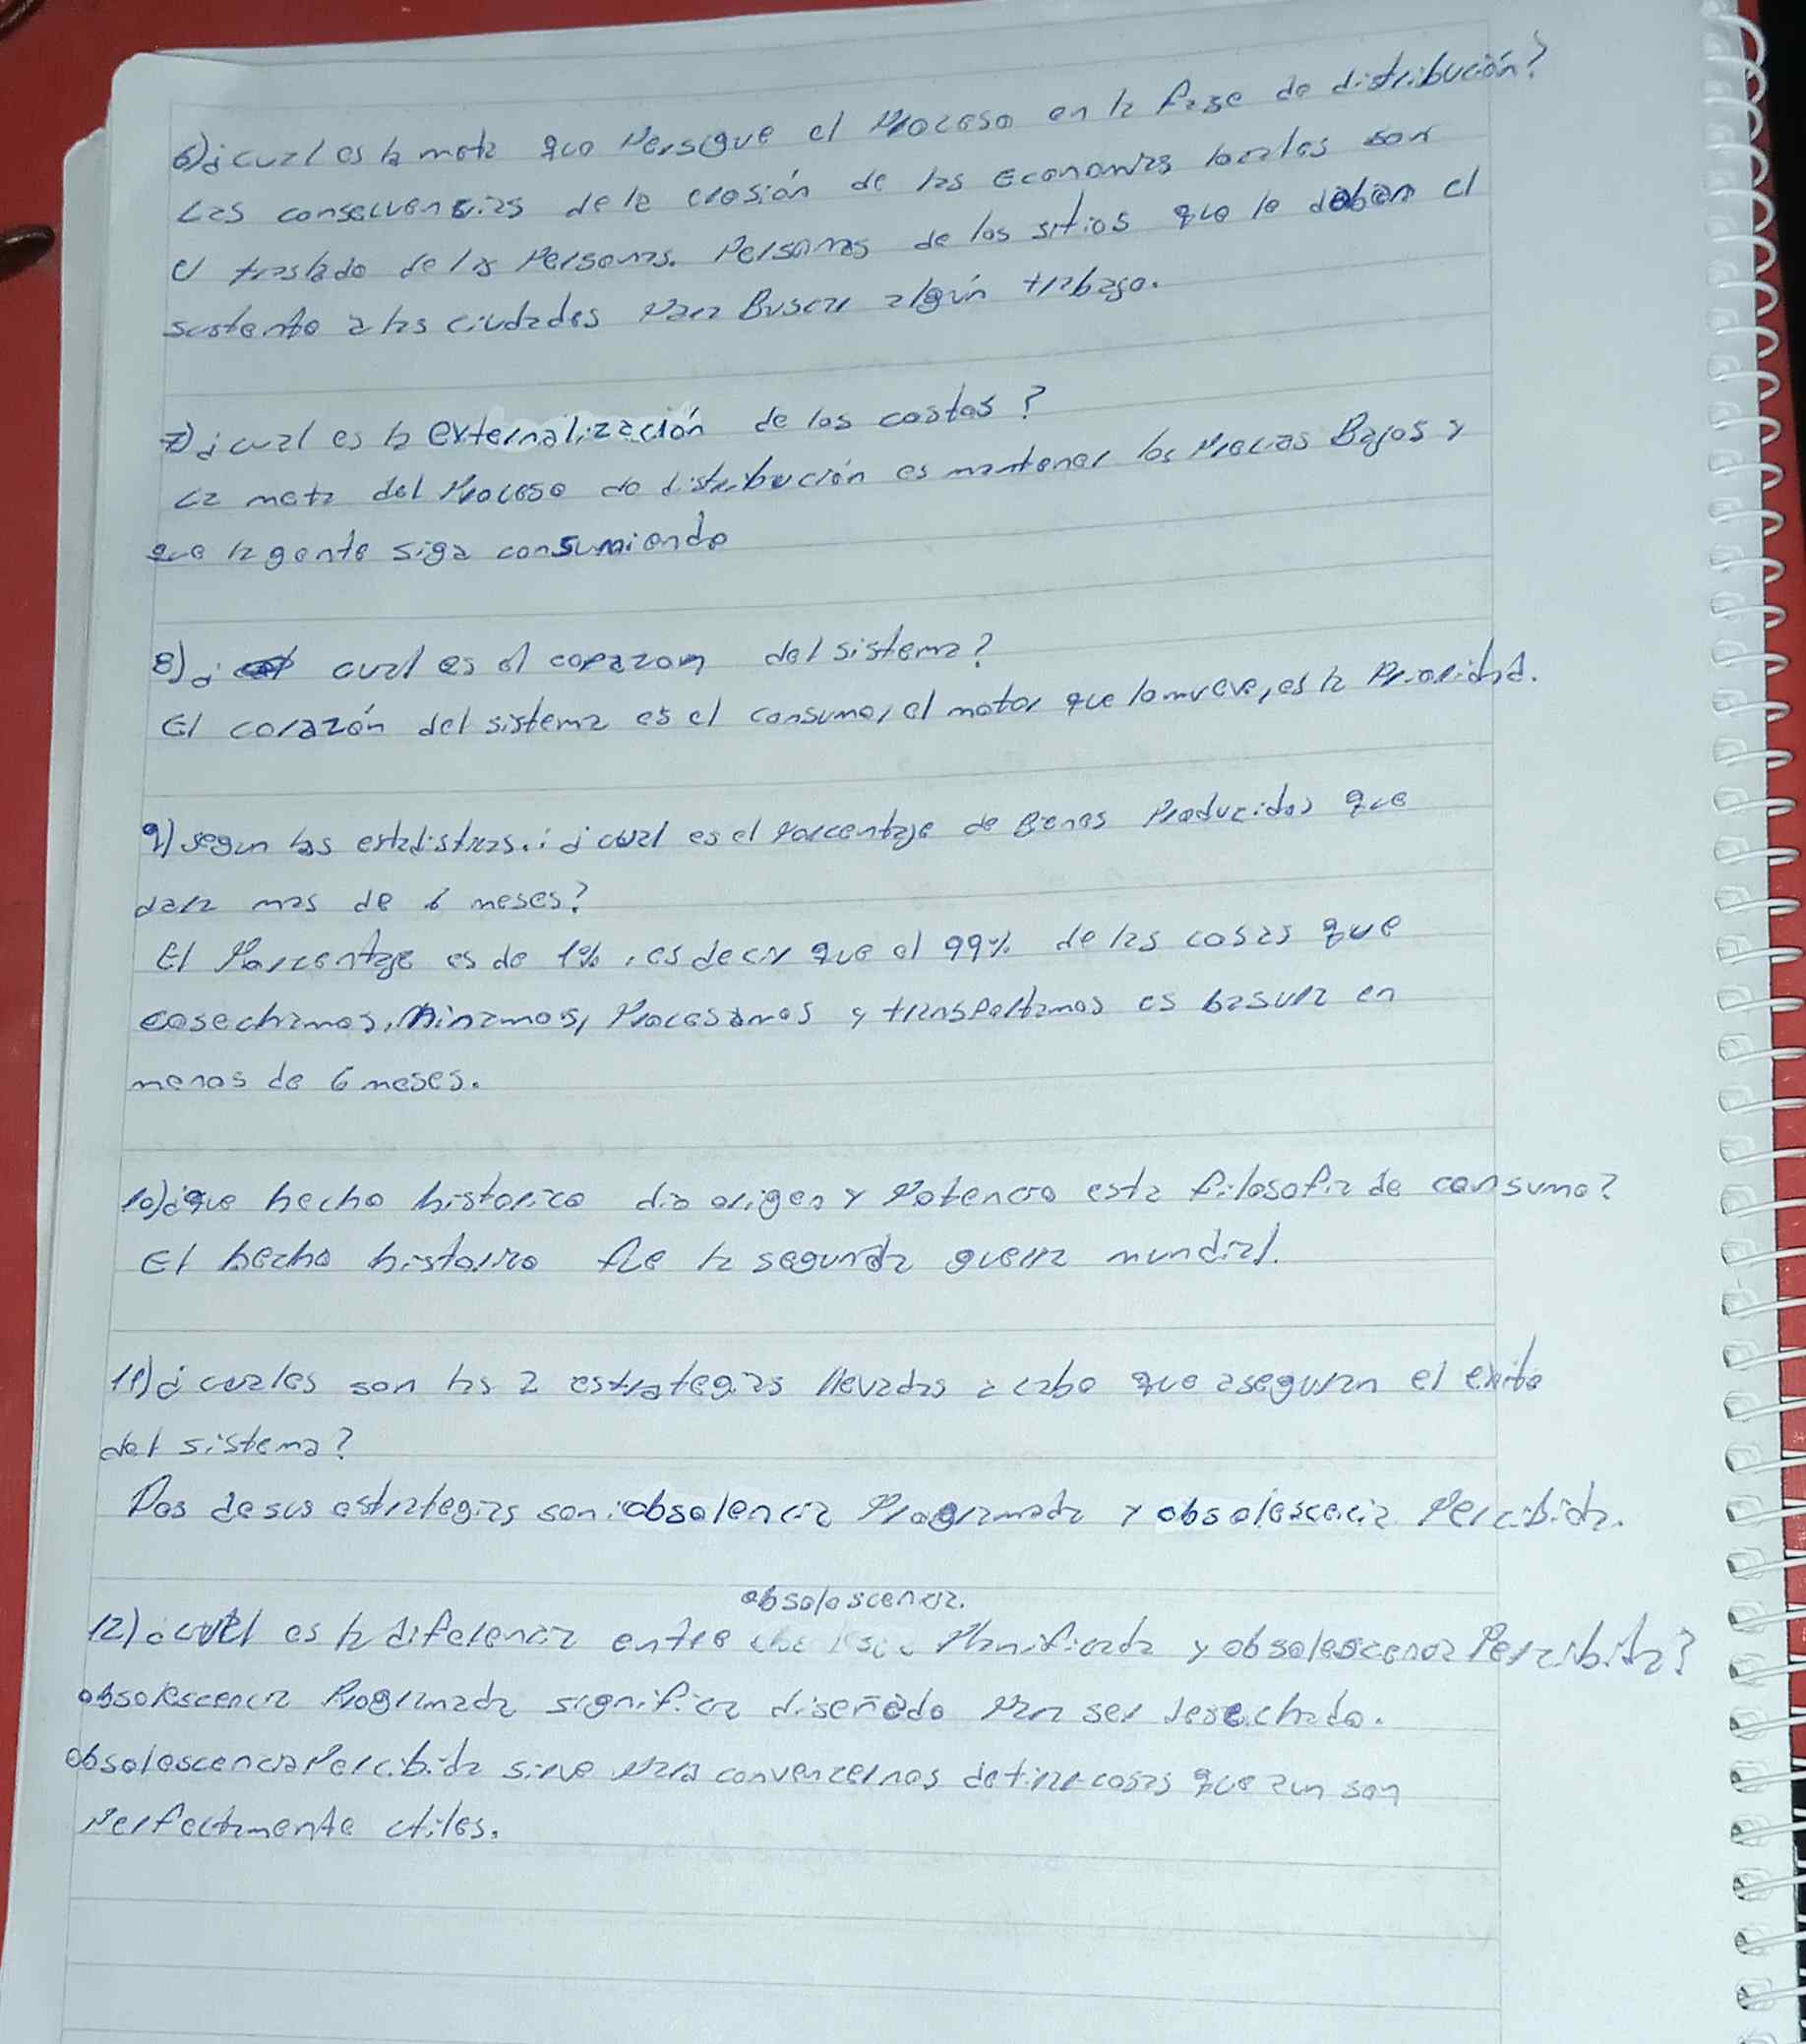 6)¿cual es la meta que persigue el proceso en la fase de distribución?
Las consecuencias de la erosión de las economias locales son
el traslado de la personas. personas de los sitios que le daban el
sustento a las ciudades para Buscar algún trabajo.
7)¿cual es la externalización de los costos?
La meta del proceso de distribución es mantener los precios Bajos y
que la gente siga consumiendo
8)¿ cual es el corazon del sistema?
El corazón del sistema es el consumo, el motor que lo mueve, es la Prioridad.
9) segun las estadisticas.: ¿cual es el porcentaje de Bienes Producidos que
dara mas de 6 meses?
El Porcentaje es de 1%, es decir que el 99% de las cosas que
cosechamos, Minamos, Procesamos y transportamos es basura en
menos de 6 meses.
10)¿que hecho historico dio origen y potencio esta filosofia de consumo?
El hecho historico fue la segunda guerra mundial.
11)¿cuales son las 2 estrategias llevadas a cabo que aseguran el exito
del sistema?
Dos de sus estrategias son: obsolencia Programada y obsolescecia Percibida.
obsolescencia.
12)¿cual es la diferencia entre Planificada y obsolescencia Percibida?
obsolescencia Programada significa diseñado para ser desechado.
obsolescencia Percibida sirve para convencernos de tirar cosas que aun son
perfectamente utiles.